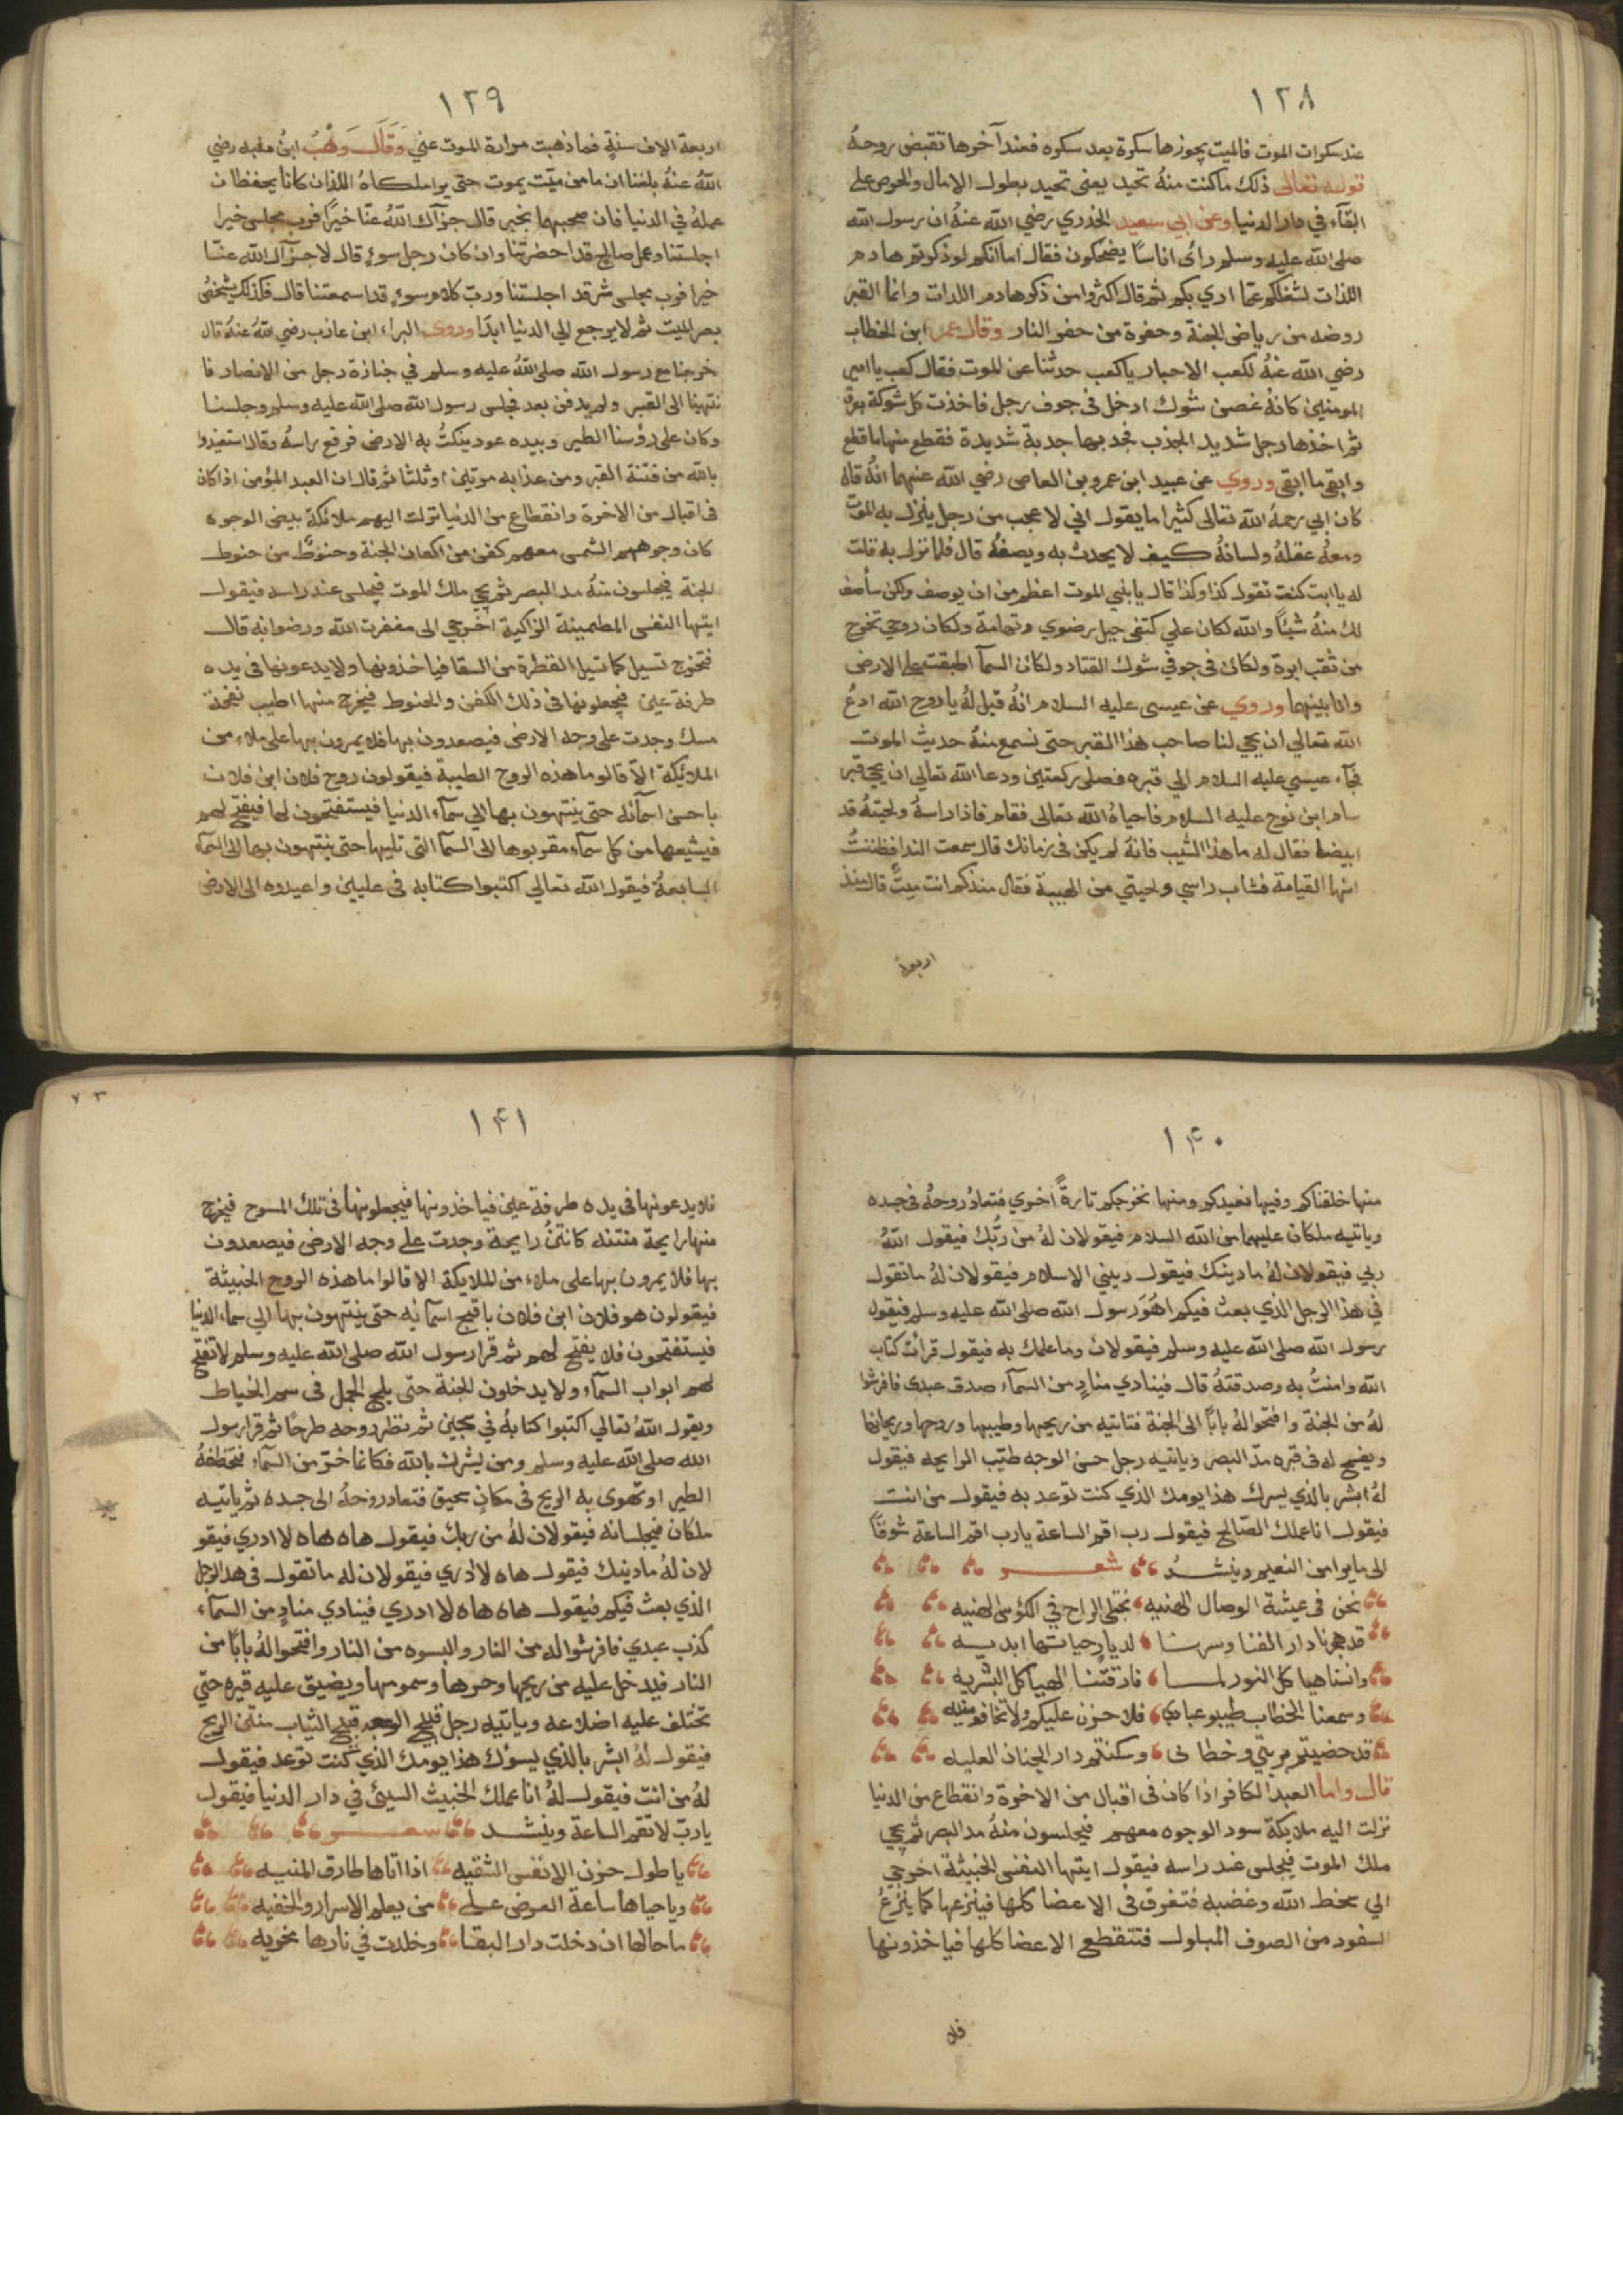 ١٣٨
عند سكرات الموت فالميت يجوزها سكرة بعد سكره فعند آخرها تقبض روحهُ
قوله تعالى ذلك ما كنت منهُ تحيد يعني تحيد بطول الامال والحرص على
البقآء في دار الدنيا وعن ابي سعيد الخدري رضي الله عنهُ ان رسول الله
صلى الله عليه وسلم رأى اناسًا يضحكون فقال اما انكم لو ذكرتم هادم
اللذات لشغلكم عمّا ارى بكم ثم قال اكثروا من ذكر هادم اللذات وانما القبر
روضه من رياض الجنة وحفرة من حفر النار وقال عمر ابن الخطاب
رضي الله عنهُ لكعب الاحبار يا كعب حدثنا عن الموت فقال كعب يا امير
المومنين كانهُ غصن شوك ادخل في جوف رجل فاخذت كل شوكة بعرق
ثم اخذها رجل شديد الجذب فجدبها جدبة شديدة فقطع منها ما قطع
وابقى ما ابقى وروي عن عبيد ابن عمرو بن العاص رضي الله عنهما انهُ قال
كان ابي رحمهُ الله تعالى كثيرا ما يقول اني لاعجب من رجل ينزل به الموت
ومعهُ عقلهُ ولسانهُ كيف لا يحدث به ويصفهُ قال فلما نزل به قلت
له يا ابت كنت تقول كذا وكذا قال يا بني الموت اعظم من ان يوصف ولكن سأصف
لك منهُ شيئًا والله لكان علي كتفي جبل رضوي وتهامة ولكان روحي تخرج
من ثقب ابرة ولكان في جوفي شوك القتاد ولكان السمآ اطبقت على الارض
وانا بينهما وروي عن عيسى عليه السلام انهُ قيل لهُ يا روح الله ادعُ
الله تعالي ان يحي لنا صاحب هذا القبر حتى نسمع منهُ حديث الموت
فجآء عيسي عليه السلام الي قبره فصلى ركعتين ودعا الله تعالي ان يحي قبر
سام ابن نوح عليه السلام فاحياهُ الله تعالى فقام فاذا راسهُ ولحيتهُ قد
ابيضا فقال له ما هذا الشيب فانهُ لم يكن في زمانك قال سمعت الندا فظننتُ
انها القيامة فشاب راسي ولحيتي من الهيبة فقال منذكم انت ميتٌ قال منذ
اربعة
١٣٩
اربعة الاف سنةٍ فما ذهبت مرارة الموت عني وَقَالَ وَهْبُ ابنُ منبه رضي
اللهُ عنهُ بلغنا ان ما من ميّت يموت حتى يرا ملكاهُ اللذان كانا يحفظان
عملهُ في الدنيا فان صحبهما بخير قال جزآك اللهُ عنّا خيرًا فرب مجلس خير
اجلستنا وعمل صالح قد احضرتنا وان كان رجل سوءٍ قال لا جزآك الله عنّا
خيرا فرب مجلس شر قد اجلستنا وربّ كلام سوءٍ قد اسمعتنا قال فكذلك يشخصُ
بصر الميت ثم لا يرجع الي الدنيا ابدًا وروى البراء ابن عازب رضي اللهُ عنهُ قال
خرجنا مع رسول الله صلى اللهُ عليه وسلم في جنازة رجل من الانصار فا
نتهينا الى القبر ولم يدفن بعد فجلس رسول الله صلى الله عليه وسلم وجلسنا
وكان على رؤسنا الطير وبيده عود ينكتُ به الارض فرفع راسهُ وقال استعيذوا
بالله من فتنة القبر ومن عذابه مرتين او ثلثا ثم قال ان العبد المؤمن اذا كان
في اقبال من الاخرة وانقطاع من الدنيا نزلت اليهم ملائكة بيض الوجوه
كان وجوههم الشمس معهم كفن من اكفان الجنة وحنوطٌ من حنوط
الجنة فيجلسون منهُ مد البصر ثم يجي ملك الموت فيجلس عند راسه فيقول
ايتها النفس المطمينة الزاكية اخرجي الى مغفرت الله ورضوانه قال
فتخرج تسيل كما تسيل القطرة من السقا فياخذونها ولا يدعونها في يده
طرفة عين فيجعلونها في ذلك الكفن والحنوط فيخرج منها اطيب نفحة
مسك وجدت على وجه الارض فيصعدون بها فلا يمرون بها على ملاء من
الملائكة الآ قالو ما هذه الروح الطيبة فيقولون روح فلان ابن فلان
باحسن اسمآئه حتى ينتهون بها الي سمآء الدنيا فيستفتحون لها فيفتح لهم
فيشيعها من كل سمآء مقربوها الى السمآ التي تليها حتى ينتهون بها الى السمآء
السابعة فيقول الله تعالي اكتبوا كتابه في عليين واعيدوه الى الارض
١٤٠
منها خلقناكم وفيها نعيدكم ومنها نخرجكم تارةً اخري فتعادُ روحهُ في جسده
وياتيه ملكان عليهما من الله السلام فيقولان لهُ من ربُّك فيقول اللهُ
ربي فيقولان لهُ ما دينك فيقول ديني الاسلام فيقولان لهُ ما تقول
في هذا الرجل الذي بعث فيكم اهُوَ رسول الله صلى الله عليه وسلم فيقول
رسول الله صلى الله عليه وسلم فيقولان وما علمك به فيقول قرأت كتاب
الله وامنتُ به وصدقتهُ قال فينادي منادٍ من السمآء صدق عبدى فافرشوا
لهُ من الجنة وافتحوا لهُ بابًا الى الجنة فتاتيه من ريحها وطيبها وروحها وريحانها
ويفسح له في قبره مدّ البصر وياتيه رجل حسن الوجه طيّب الرايحه فيقول
لهُ ابشر بالذي يسرك هذا يومك الذي كنت توعد به فيقول من انت
فيقول انا عملك الصّالح فيقول رب اقم الساعة يارب اقم الساعة شوقًا
الى ما يرا من النعيم وينشدُ شعر
نحن في عيشة الوصال الهنيه نجتلى الراح في الكؤس الهنيه
قد هجرنا دار الفنا وسرنا لديارٍ حياتها ابديه
واتنا هيا كل النور لما فارقتنا الهياكل البشّريه
وسمعنا الخطاب طيبو عبادي فلا حزن عليكم ولا تخافو منيه
قد حضيتم بربتي وخطابى وسكنتم دار الجنان العليه
قال واما العبد الكافر اذا كان في اقبال من الاخرة وانقطاع من الدنيا
نزلت اليه ملايكة سود الوجوه معهم فيجلسون منهُ مد البصر ثم يجي
ملك الموت فيجلس عند راسه فيقول ايتها النفس الخبيثة اخرجي
الي سخط الله وغضبه فتغرق في الاعضا كلها فينزعها كما ينزعُ
السفود من الصوف المبلول فتتقطع الاعضا كلها فياخذونها
فلا
٧٣
١٤١
فلا يدعونها في يده طرفة عين فياخذونها فيجعلونها في تلك المسوح فيخرج
منها رايحة منتنه كانتنُ رايحة وجدت على وجه الارض فيصعدون
بها فلا يمرون بها على ملاء من الملايكة الا قالوا ما هذه الروح الخبيثة
فيقولون هو فلان ابن فلان باقبح اسمآئه حتى ينتهون بها الي سماء الدنيا
فيستفتحون فلا يفتح لهم ثم قرا رسول الله صلى الله عليه وسلم لا تفتح
لهم ابواب السمآء ولا يدخلون الجنة حتى يلج الجمل في سم الخياط
ويقول اللهُ تعالي اكتبوا كتابهُ في سجين ثم تطرد روحه طرحًا ثم قرا رسول
الله صلى الله عليه وسلم ومن يشرك بالله فكانما خرّ من السمآء فتخطفهُ
الطير او تهوى به الريح في مكانٍ سحيق فتعاد روحهُ الى جسده ثم ياتيه
ملكان فيجلسانه فيقولان لهُ من ربك فيقول هاه هاه لا ادري فيقو
لان لهُ ما دينك فيقول هاه لا ادري فيقولان له ما تقول في هذا الرجل
الذي بعث فيكم فيقول هاه هاه لا ادري فينادي منادٍ من السمآء
كذب عبدي فافرشوا له من النار والبسوه من النار وافتحوا لهُ بابًا من
النار فيدخل عليه من ريحها وحرها وسمومها ويضيق عليه قبره حتي
تختلف عليه اضلاعه وياتيه رجل قبيح الوجه قبيح الثياب منتن الريح
فيقول لهُ ابشر بالذي يسؤك هذا يومك الذي كنت توعد فيقول
لهُ من انت فيقول لهُ انا عملك الخبيث السيئ في دار الدنيا فيقول
يا ربّ لا تقم الساعة وينشد شعر
يا طول حزن الانفس الشقيه اذا اتاها طارق المنيه
ويا حياها ساعة العرض على من يعلم الاسرار والخفيه
ما حالها ان دخلت دار البقا وخلدت في نارها مخزيه